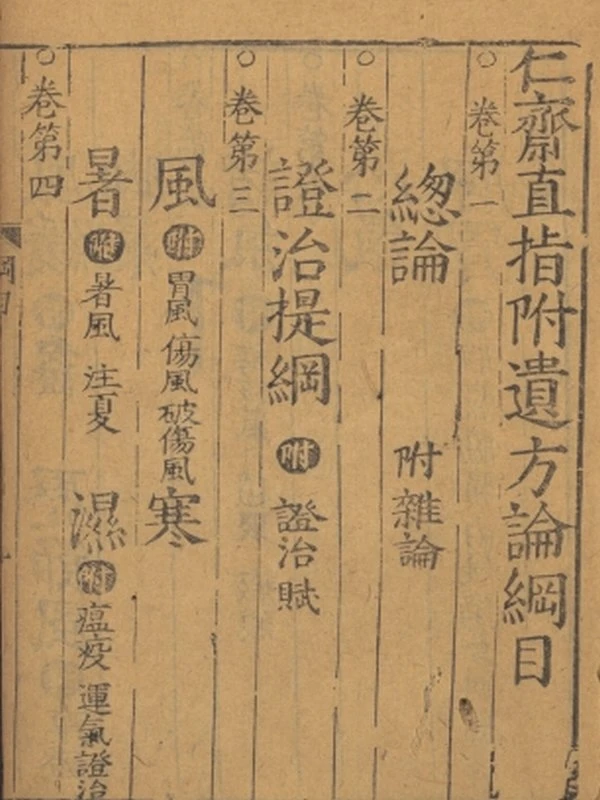 仁齋直指附遺方論綱目
○卷第一
總論 附雜論
○卷第二
證治提綱 附 證治賦
○卷第三
風 附 胃風 傷風 破傷風 寒
暑 附 暑風 注夏 濕 附 瘟疫 運氣證治
○卷第四
綱目